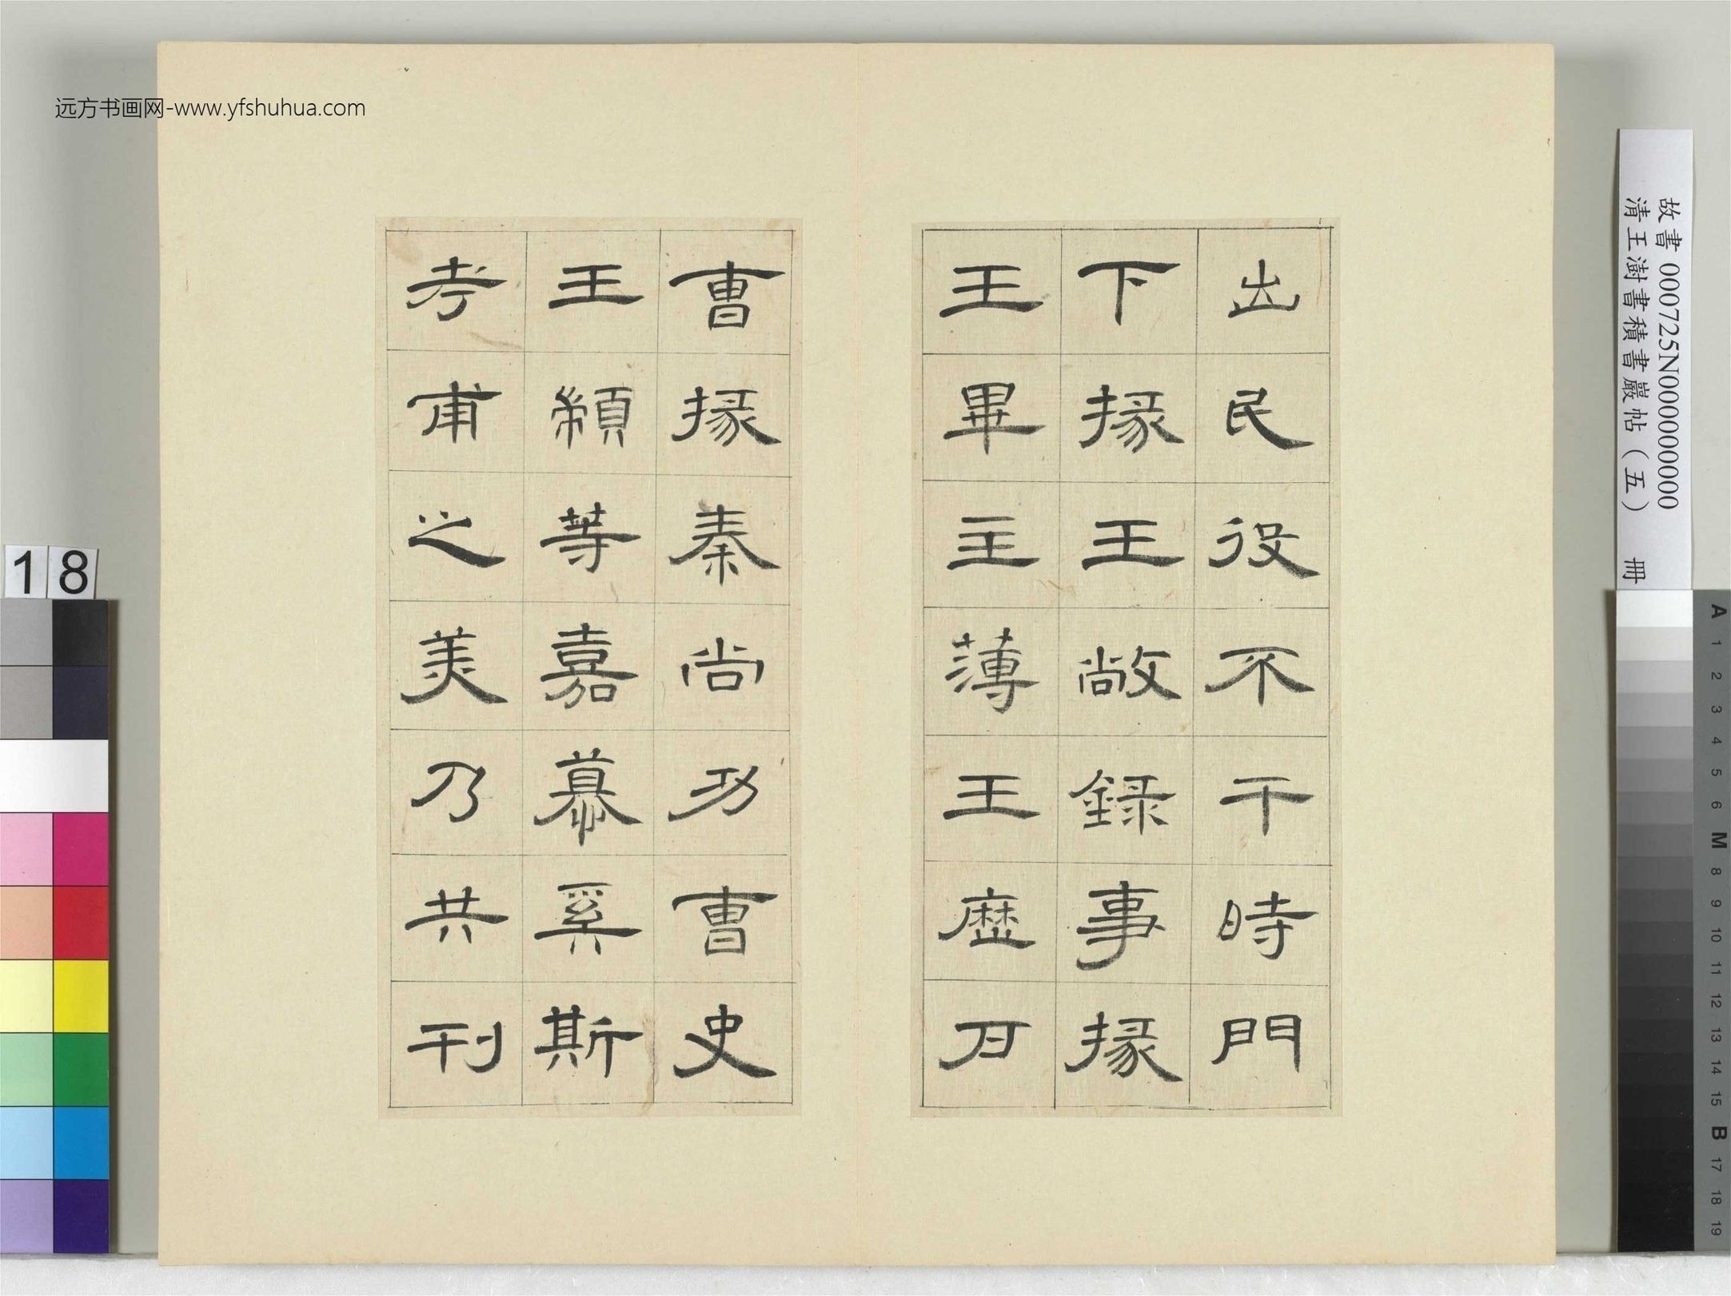 远方书画网-www.yfshuhua.com
出民役不干時門
下掾王敞錄事掾
王畢主薄王歷
曹掾秦尚功曹史
王顓等嘉慕奚斯
考甫之美乃共刊
故書 000725N000000000
清王澍書積書巖帖（五） 冊
18
A 1 2 3 4 5 6 M 8 9 10 11 12 13 14 15 B 17 18 19